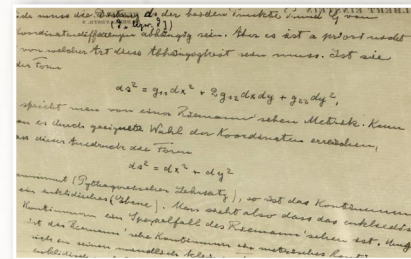 muss die Abstand ds der beiden Punkte P und G von
(g, bzw. g)
Koordinatendifferenzen abhängig sein. Aber es ist a priori nicht
von welcher Art diese Abhängigkeit sein muss. Ist sie
der Form
ds² = g₁₁dx² + 2g₁₂dxdy + g₂₂dy²,
spricht man von einer Riemann'schen Metrik. Kann
man es durch geeignete Wahl der Koordinaten erreichen,
dass dieser Ausdruck die Form
ds² = dx² + dy²
annimmt (Pythagoreischer Lehrsatz), so ist das Kontinuum
ein euklidisches (Ebene). Man sieht also dass das euklidische
Kontinuum ein Spezialfall des Riemann'schen ist.
ist das Riemann'sche Kontinuum ein metrisches
sich an seinen
euklidisch